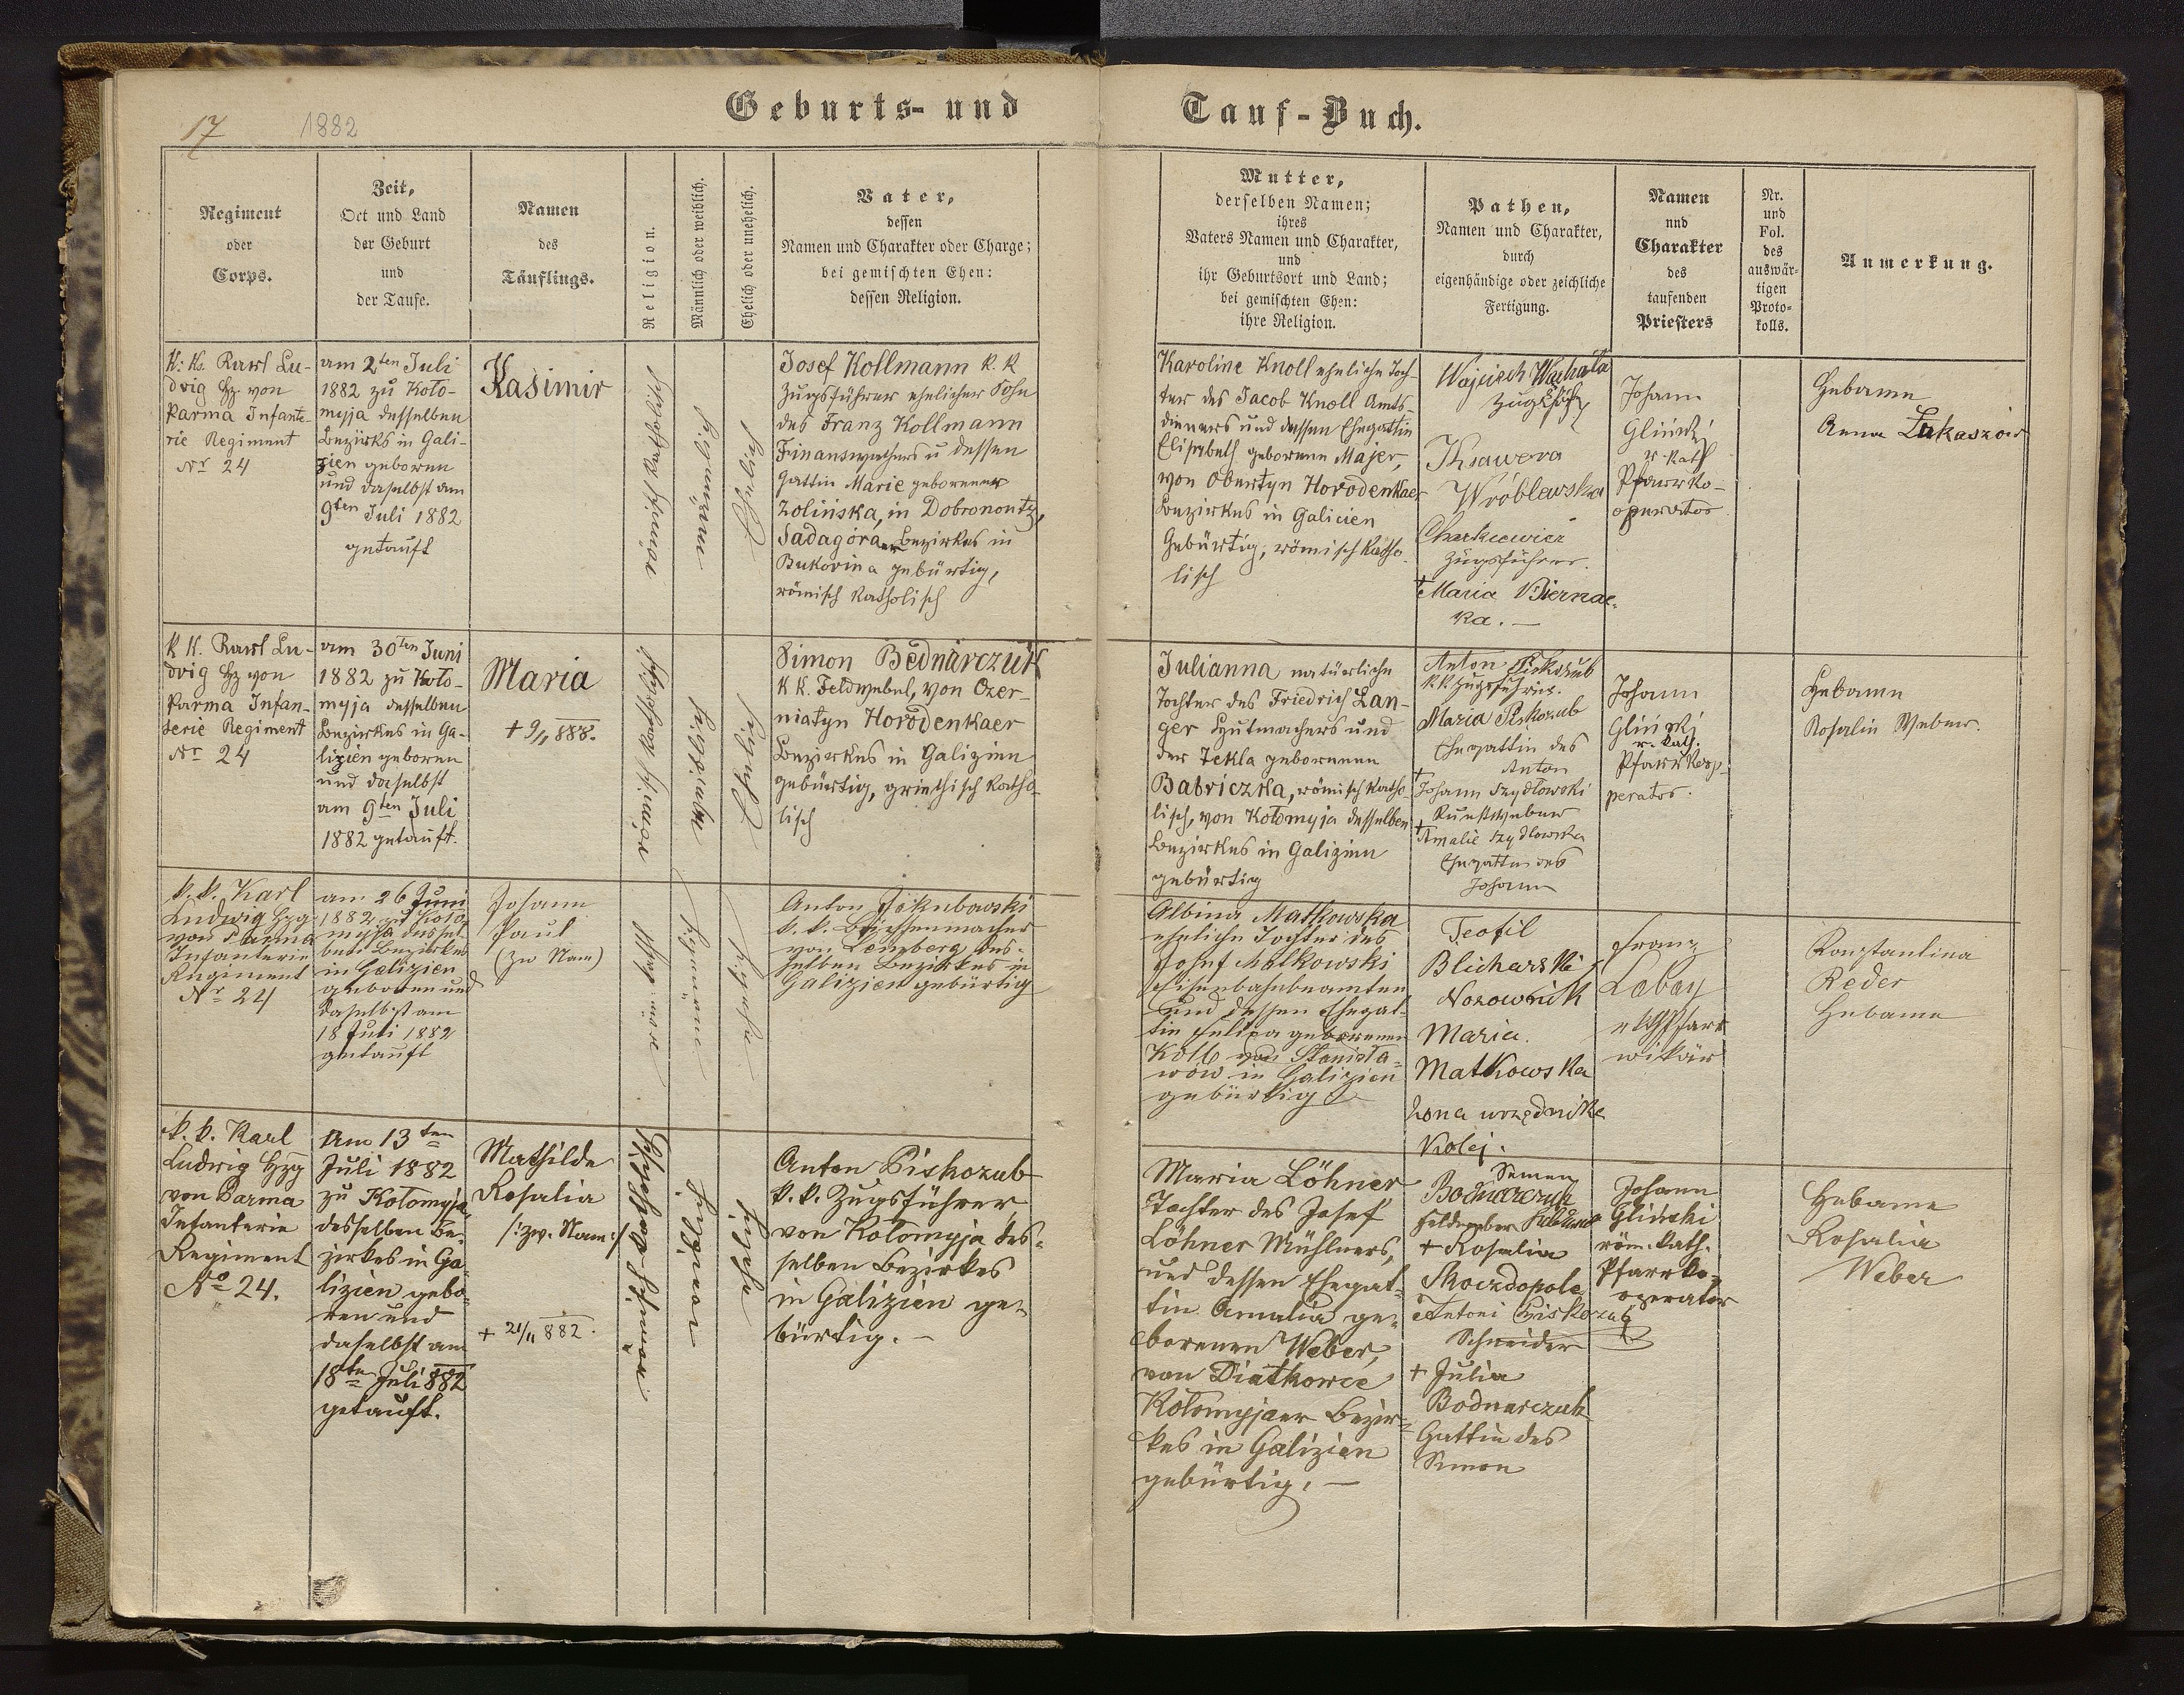 17
1882
Geburts- und
Tauf-Buch.
Regiment
oder
Corps.
Zeit,
Ort und Land
der Geburt
und
der Taufe.
Namen
des
Täuflings.
Religion.
Männlich oder weiblich.
Ehelich oder unehelich.
Vater,
dessen
Namen und Charakter oder Charge;
bei gemischten Ehen:
dessen Religion.
Mutter,
derselben Namen;
ihres
Vaters Namen und Charakter,
und
ihr Geburtsort und Land;
bei gemischten Ehen:
ihre Religion.
Pathen,
Namen und Charakter,
durch
eigenhändige oder zeichliche
Fertigung.
Namen
und
Charakter
des
taufenden
Priesters
Nr.
und
Fol.
des
auswär-
tigen
Proto-
kolls.
Anmerkung.
K. K. Karl Lu-
dvig Hz von
Parma Infante-
rie Regiment
Nr 24
am 2ten Juli
1882 zu Koło-
myja desselben
Bezirks in Gali-
zien geboren
und daselbst am
9ten Juli 1882
getauft
Kasimir
römisch katholisch
männlich
Ehelich
Josef Kollmann K. K
Zugsführer ehelicher Sohn
des Franz Kollmann
Finanzwachers u dessen
Gattin Marie geborener
Zolińska, in Dobronoutz,
Sadagóraer Bezirkes in
Bukovina gebürtig,
römisch katholisch
Karoline Knoll eheliche Toch-
ter des Jacob Knoll Amts-
dieners und dessen Ehegattin
Elisabeth geborene Majer,
von Obertyn Horodenkaer
Bezirkes in Galicien
Gebürtig, römisch katho-
lisch
Wojciech Wachała
Zugsfhr
Ksawera
Wróblewska
Charkiewicz
Zugsführer.
+ Maria Biernac-
ka. —
Johann
Gliński
r. kath
Pfarrko-
operator
Hebame
Anna Lukaszow
K K. Karl Lu-
dvig Hz von
Parma Infan-
terie Regiment
Nr 24
am 30ten Juni
1882 zu Koło-
myja desselben
Bezirkes in Ga-
lizien geboren
und daselbst
am 9ten Juli
1882 getauft.
Maria
+ 9/11 888.
römisch katholisch
weiblich
Ehelich
Simon Bednarczuk
K K. Feldwebel, von Czer-
niatyn Horodenkaer
Bezirkes in Galizien
gebürtig, griechisch katho-
lisch
Julianna natürliche
Tochter des Friedrich Lan-
ger Hutmachers und
der Tekla geborenen
Babriczka, römisch katho-
lisch, von Kołomyja desselben
Bezirkes in Galizien
gebürtig
Anton Piskozub
K.K. Zugsführer.
Maria Piskozub
Ehegattin des
Anton
+ Johann Szydłowski
+ Amalie Szydlowska
Ehegattin des
Johann
Johann
Gliński
r. kath.
Pfarrkoop-
perator.
Hebame
Rosalia Weber.
k. k. Karl
Ludwig Hzg
von Parma
Infanterie
Regiment
Nr 24
am 26 Juni
1882 zu Koło-
myja dessel-
ben Bezirkes
in Galizien
geboren und
daselbst am
18 Juli 1882
getauft
Johann
Paul
(zw Nam)
männlich
ehelich
Anton Jakubowski
k. k. Büchsenmacher
von Lemberg des-
selben Bezirkes in
Galizien gebürtig
Albina Matkowska
eheliche Tochter des
Josef Matkowski
Eisenbahnbeamten
und dessen Ehegat-
tin Felixa geborenen
Kolb von Stanisła-
wów in Galizien
gebürtig
Teofil
Blicharski
Maria.
Matkowska
żona urzędnika
Kolej.
Franz
Labay
Pfarr
wikär
Konstantina
Reder
Hebame
k. k. Karl
Ludwig Hzg
von Parma
Infanterie
Regiment
No 24.
Am 13ten
Juli 1882
zu Kołomyja
desselben Be-
zirkes in Ga-
lizien gebo-
ren und
daselbst am
18ten Juli 882
getauft.
Mathilde
Rosalia
/: zw. Nam :/
+ 21/11 882.
römisch katholisch
weiblich
ehelich
Anton Piskozub
k. k. Zugsführer
von Kołomyja des-
selben Bezirkes
in Galizien ge-
bürtig. —
Maria Löhner
Tochter des Josef
Löhner Mühlners,
und dessen Ehegat-
tin Amalia ge-
borenen Weber,
von Diatkowce
Kołomyjaer Bezir-
kes in Galizien
gebürtig. —
Semen
Bodnarczuk
+ Rosalia
Antoni Piskozub
Schneider
+ Julia
Bodnarczuk
Gattin des
Simon
Johann
Gliński
röm. kath.
Pfarrko-
operator
Hebame
Rosalia
Weber